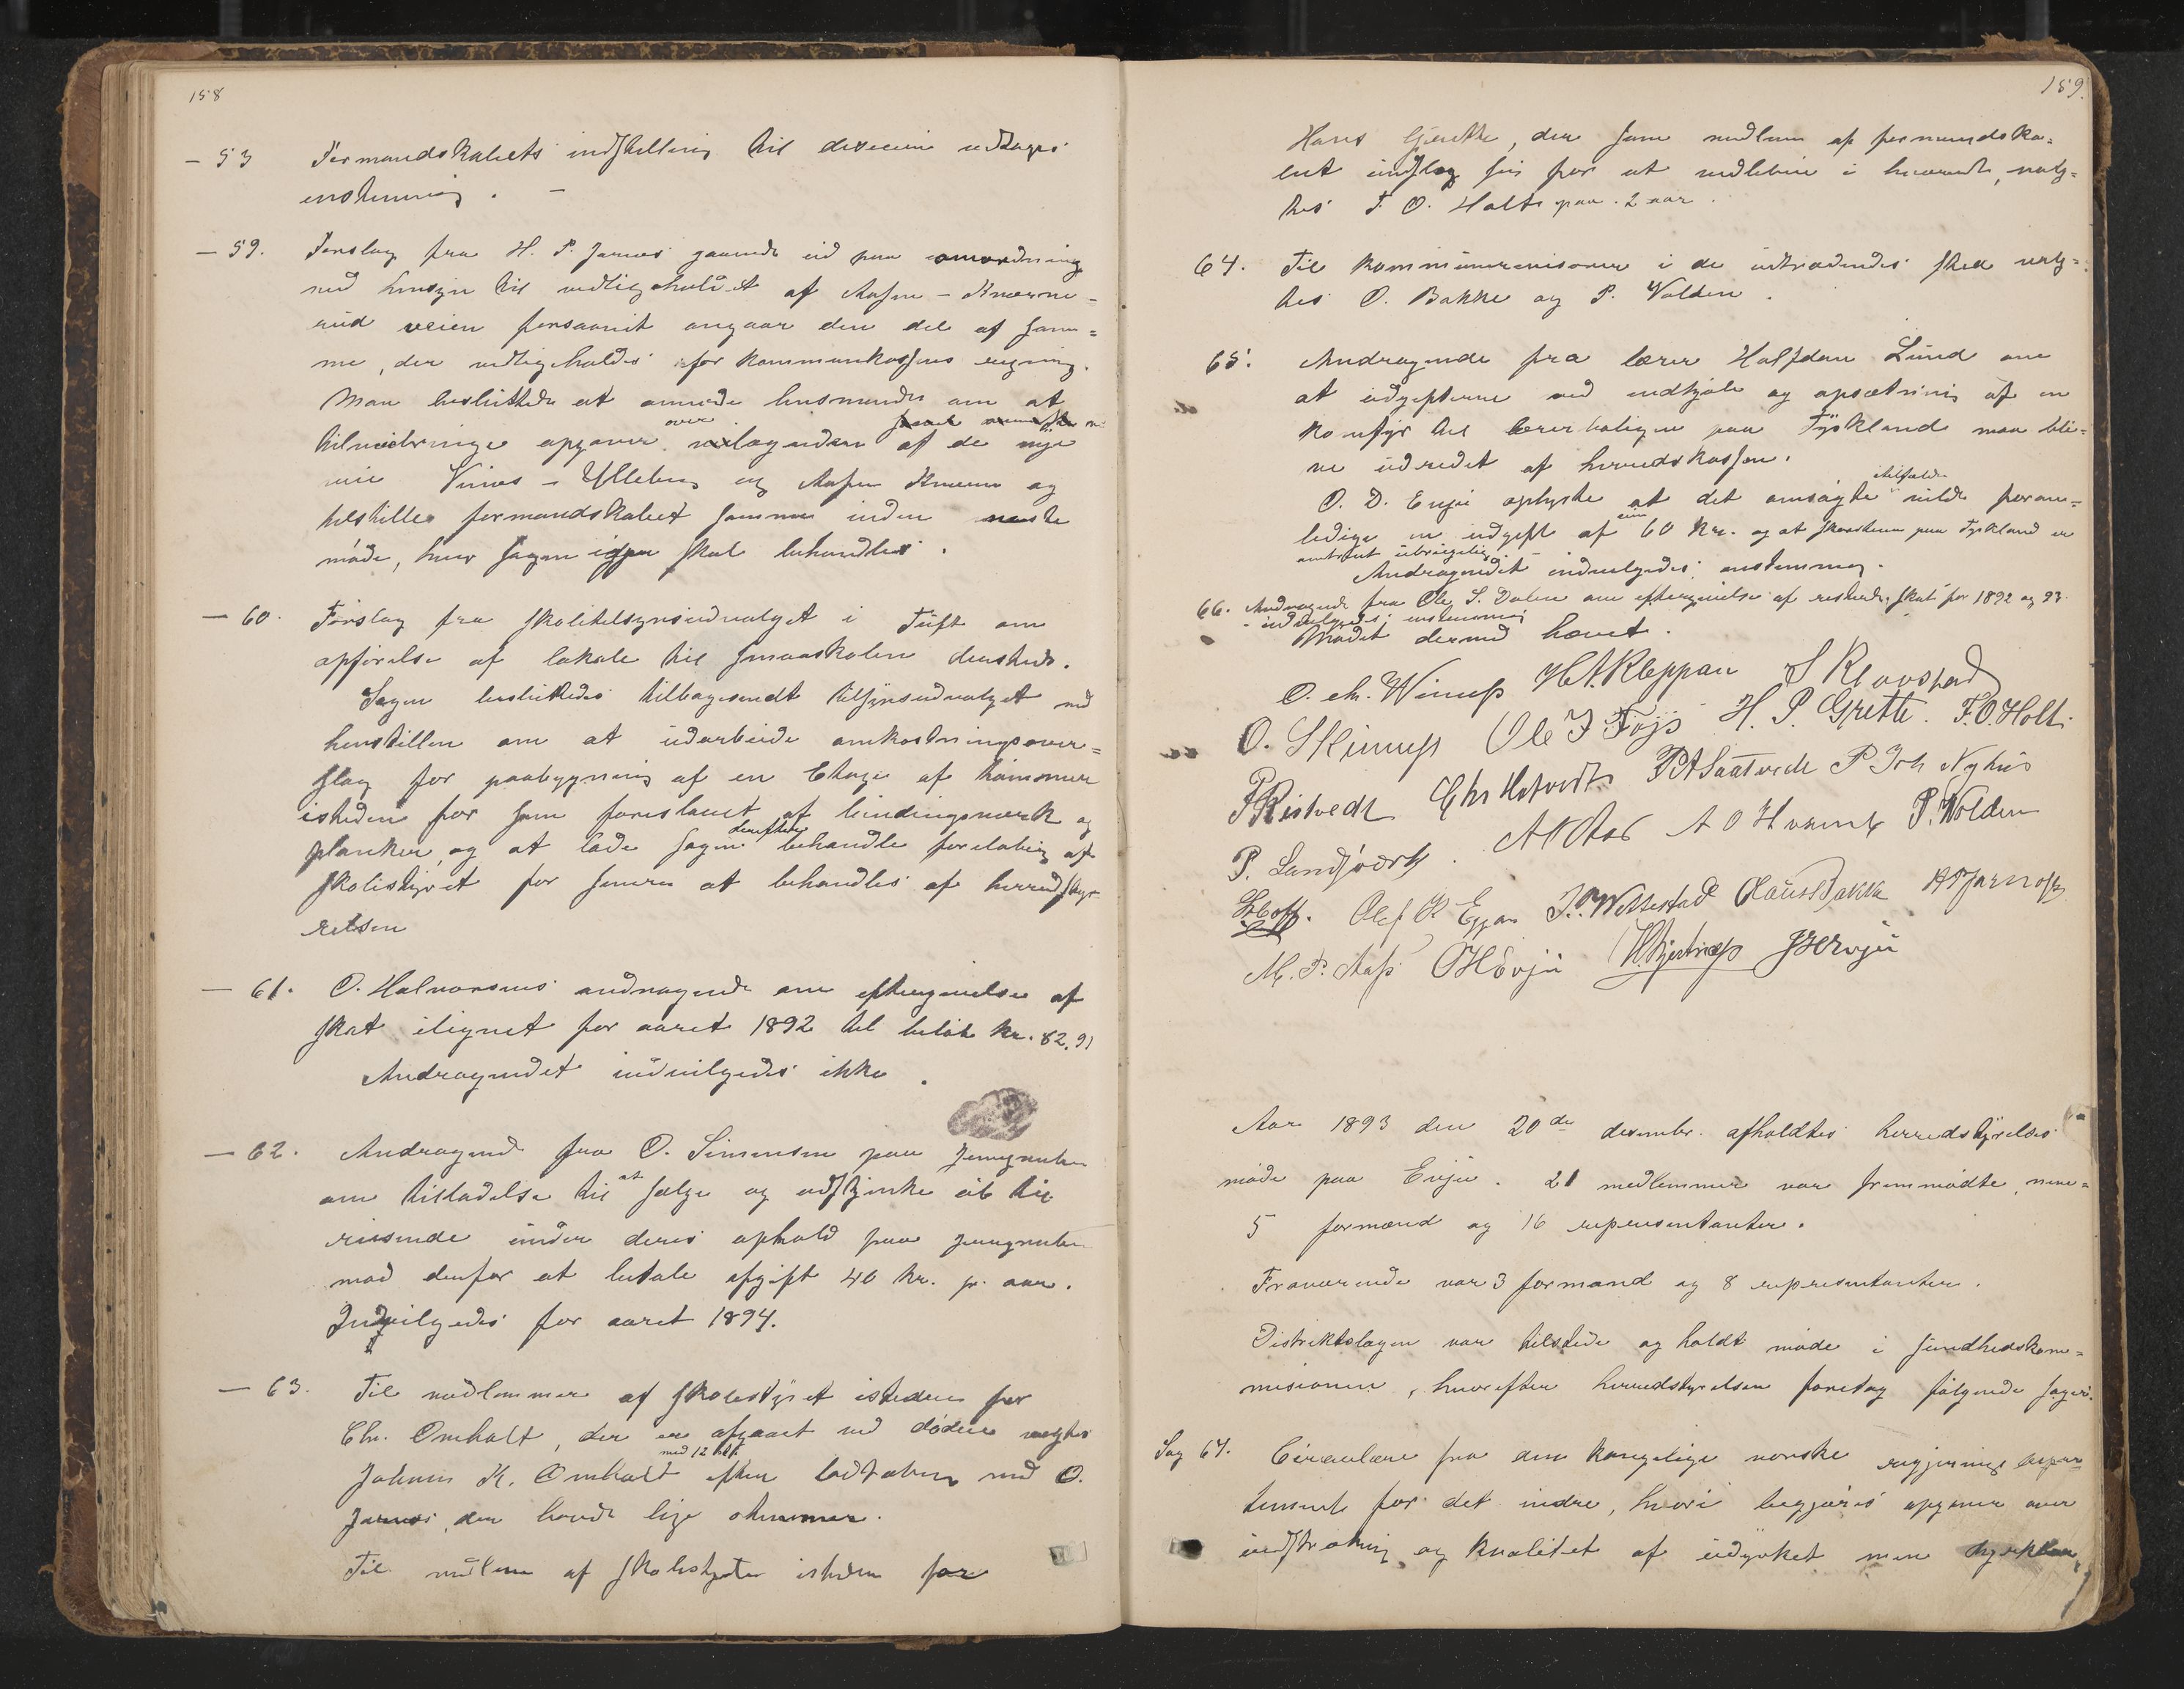 158
— 53 Formandskabets indstilling til decision vedtages
enstemmig . —
— 59. Forslag fra H. P. Jarnæs gaaende ud paa omordning
med hensyn til vedligeholdet af Aasen -
rud veien forsaavidt angaar den del af sam=
me, der vedligeholdes for kommunekassens regning.
Man besluttede at anmode lensmanden om at
tilveiebringe opgaver over af de nye
veie Vinæs - Ulleberg og Aasen og
tilstille formandskabet samme inden næste
møde, hvor sagen igjen skal behandles .
— 60. Forslag fra skoletilsynsudvalget i Tuft om
opførelse af lokale til smaaskolen densteds.
Sagen besluttedes tilbagesendt tilsynsudvalget med
henstillen om at udarbeide omkostningsover=
slag for paabygning af en Etage af tømmer
isteden for som foreslaaet af bindingsværk og
planker, og at lade sagen derefter behandle foreløbig af
skolestyret for senere at behandles af herredssty-
relsen
— 61. O. Halvorsens andragende om eftergivelse af
skat ilignet for aaret 1892 til beløb kr. 82.91
Andragendet indvilgedes ikke .
— 62. Andragende fra O. Simensen paa Jerngruben
om tilladelse til at sælge og udskjenke øl til
reisende under deres ophold paa Jerngruben
mod derfor at betale afgift 40 kr. pr. aar.
Indvilgedes for aaret 1894.
— 63. Til medlemmer af skolestyret isteden for
Chr. Omholt, der er afgaaet ved døden valgtes
Johannes K. Omholt med 12 efter lodtrækning med O.
Jarnæs, der havde lige stemmer.
Til medlem af skolestyret isteden for
159.
Hans Gjertte, der som medlem af formandska=
bet undslog sig for at vedblive i hvervet, valg=
tes T. O. Holte paa 2 aar .
64. Til kommunerevisorer i de udtrædendes sted valg=
tes O. Bakke og P. Volden .
65. Andragende fra lærer Halfdan Lund om
at udgifterne ved indkjøb og opsætning af en
komfyr til lærerboligen paa Tyskland maa bli=
ve udredet af herredskassen.
O. D. Evju oplyste at det omsøgte itilfælde vilde foran=
ledige en udgift af 60 kr. og at skorstenen paa Tyskland er
Andragendet indvilgedes enstemmig.
66. Andragende fra Ole S. Dalen om eftergivelse af resterende skat for 1892 og 93.
- indvilgedes enstemmig
Mødet dermed hævet.
O. Ch. Winness H. A. Kleppan S Klovstad
O. Skinnes Ole J Fojs H. P. Grette. T. O. Holt.
P Ristvedt Chr Hotvedt P A Saatvedt P Joh Nyhus
P. Landsværk . A N Aas A O Hvaml P. Wolden
L. Hoff. Olef K Eggar T. Wettestad Claus Bakka H P Jarnæss
M. P. Aass O H Evju H. Bjertnæs J H Evju
Aar 1893 den 20de december afholdtes herredstyrelses
møde paa Evju . 21 medlemmer var fremmødte, neml=
5 formænd og 16 repræsentanter.
Fraværende var 3 formænd og 8 repræsentanter.
Distriktslægen var tilstede og holdt møde i sundhedskom=
misionen, hvorefter herredstyrelsen foretog følgende sager:
Sag 67. Circulære fra den kongelige norske regjerings depar=
tement for det indre, hvori begjæres opgaver over
udstrækning og kvalitet af udyrket men dyrkbar